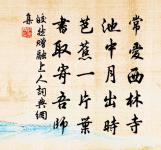 常愛西林寺
池中月出時
芭蕉一片葉
書取寄吾師
皎然贈融上人詞典網
集